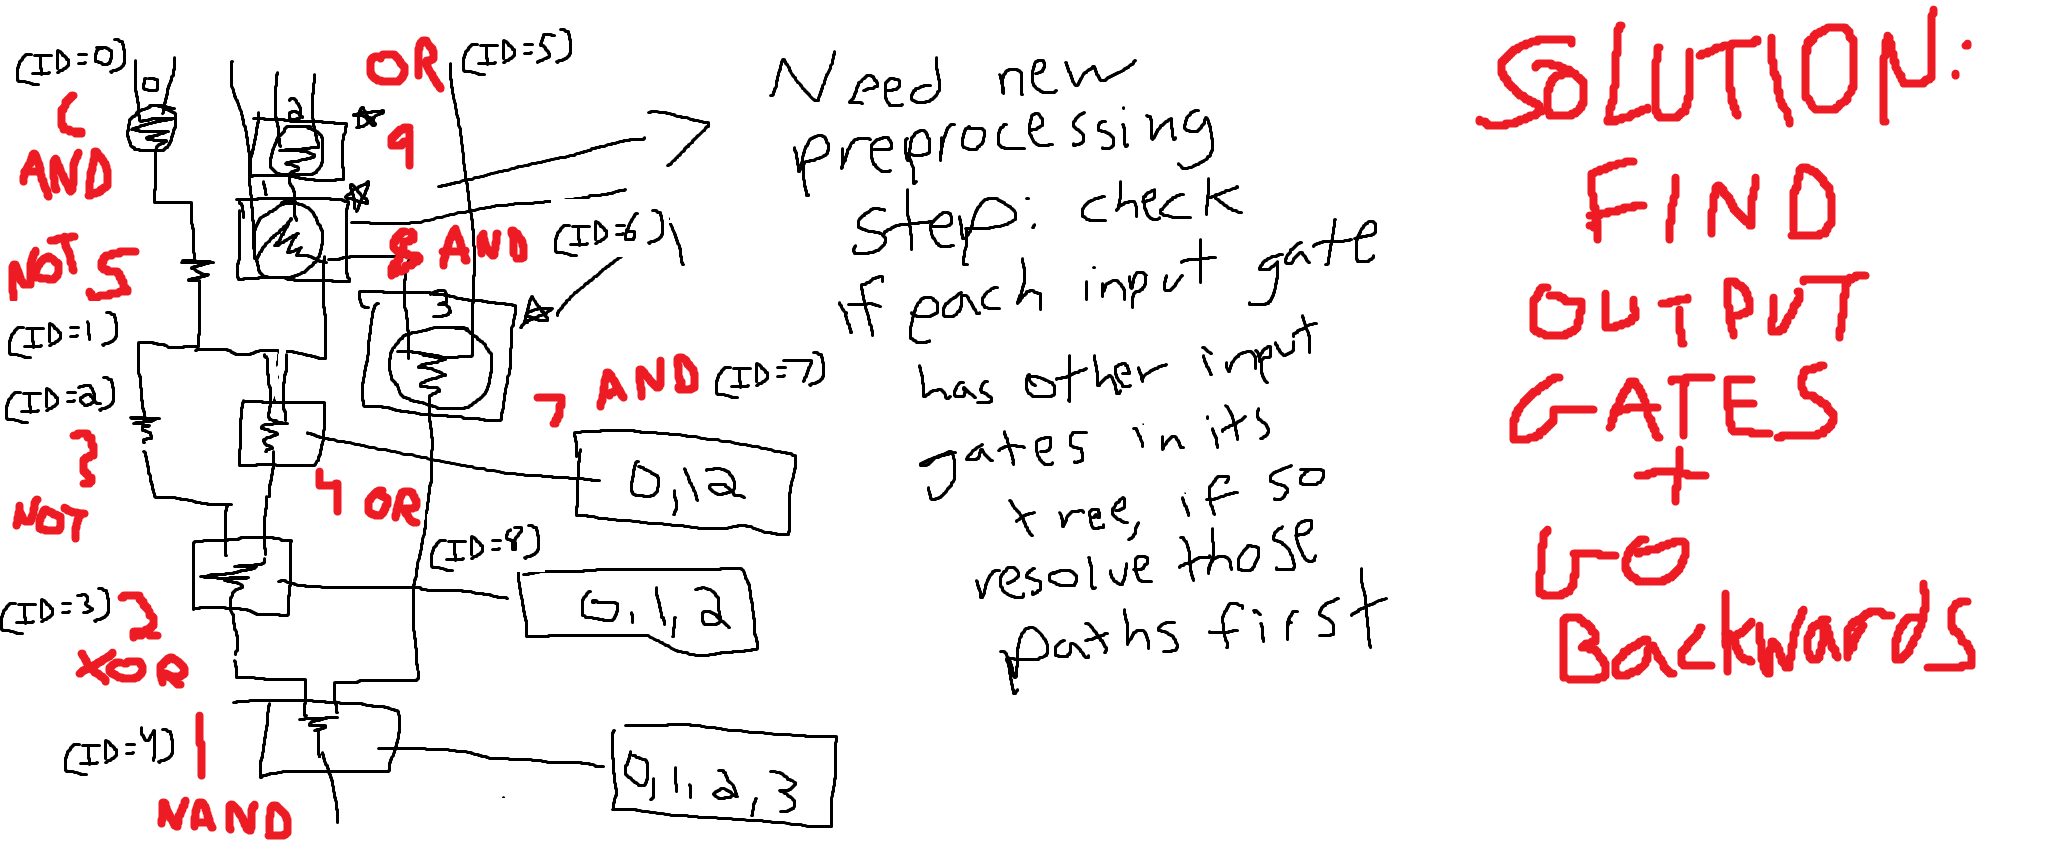 (ID=0)
0
C
AND
2
OR
9
(ID=5)
1
NOT 5
8 AND
(ID=6)
(ID=1)
3
(ID=2)
7 AND
(ID=7)
3
NOT
4 OR
0,12
(ID=8)
0,1,2
(ID=3)
2
XOR
(ID=4)
1
NAND
0,1,2,3
Need new
preprocessing
step: check
if each input gate
has other input
gates in its
tree, if so
resolve those
paths first
SOLUTION:
FIND
OUTPUT
GATES
+
GO
Backwards